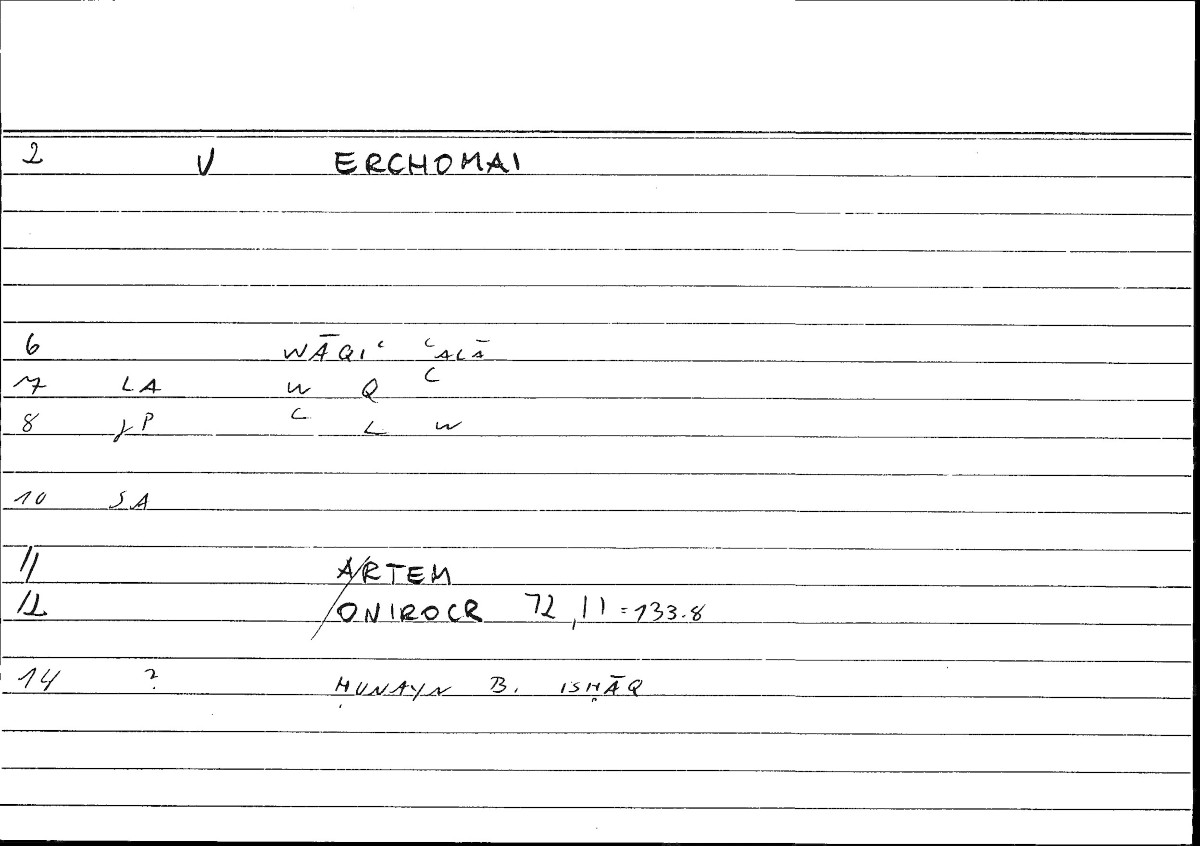 2 V ERCHOMAI
6 WĀQIʿ ʿALĀ
7 LA W Q ʿ
8 P ʿ L W
10 SA
11 ARTEM
12 ONIROCR 72,11=133.8
14 ? ḤUNAYN B. ISḤĀQ